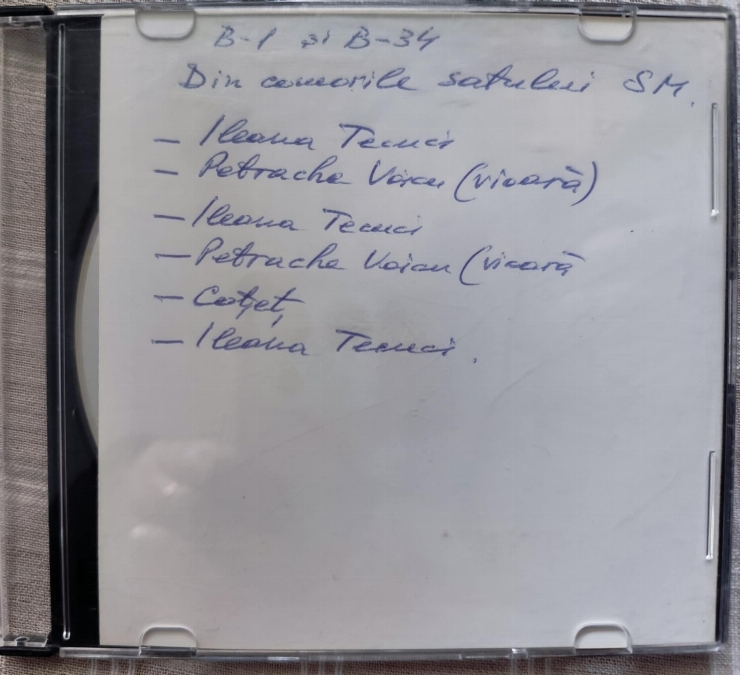 B-1 și B-34
Din comorile satului SM.
- Ileana Tecuci
- Petrache Voicu (vioară)
- Ileana Tecuci
- Petrache Voicu (vioară
- Coțeț,
- Ileana Tecuci.